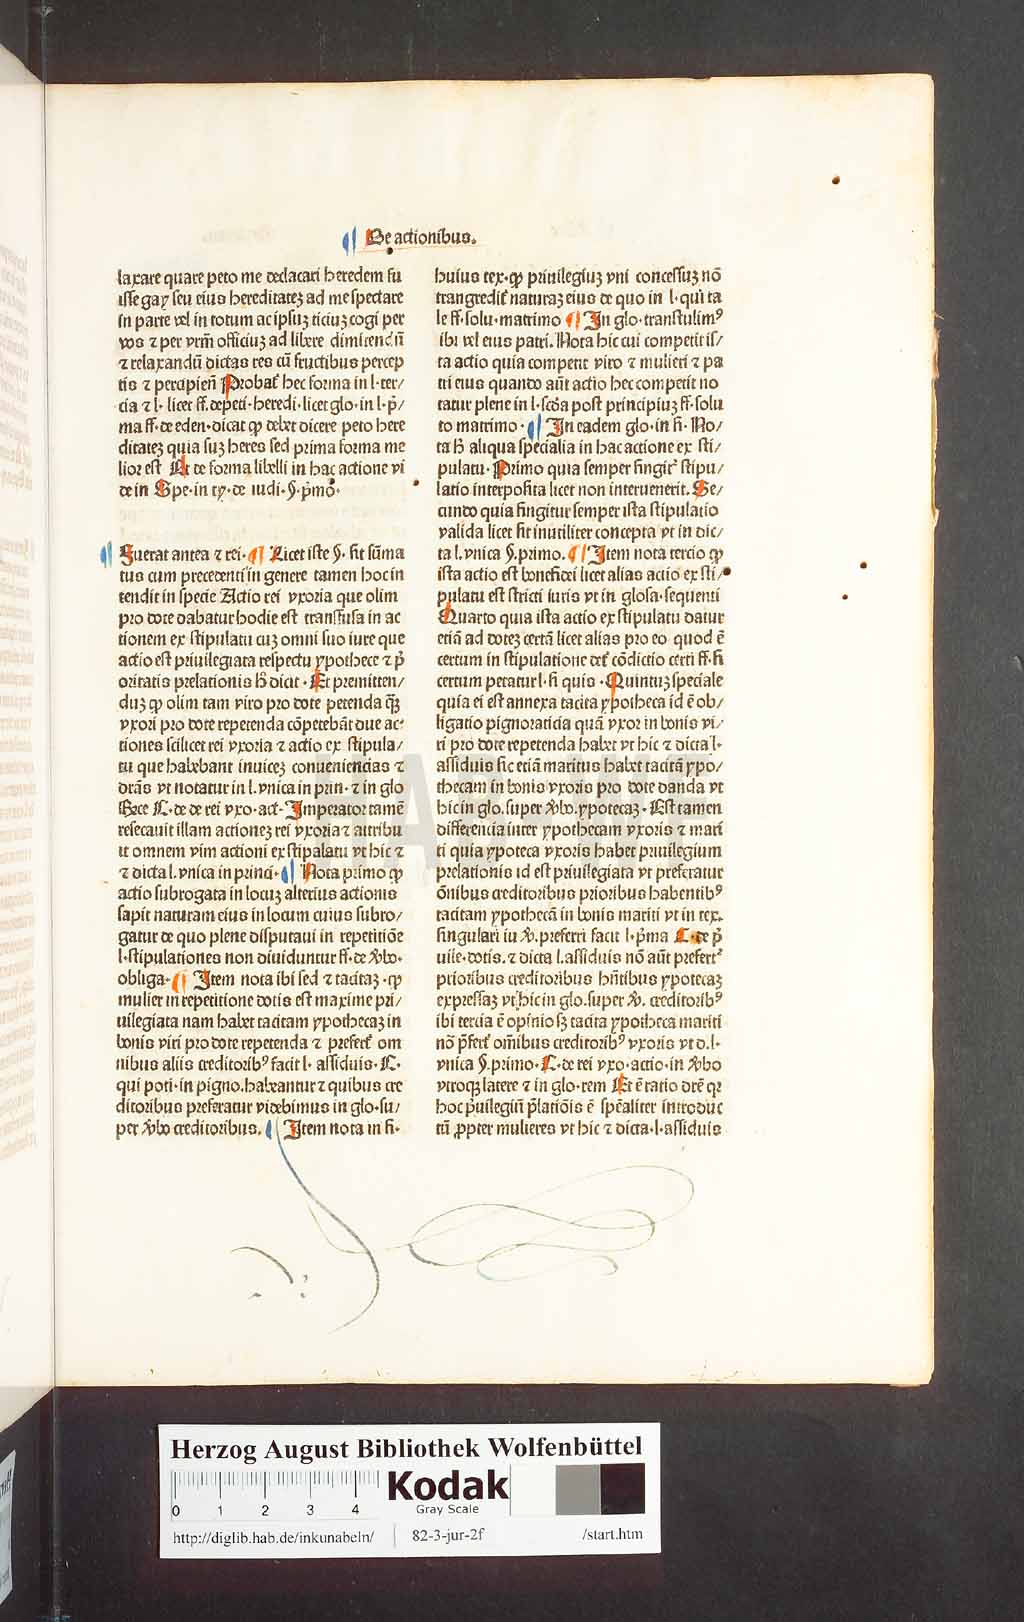 ¶ De actionibus.
laxare quare peto me declarari heredem fu
isse gaÿ seu eius hereditateȝ ad me spectare
in parte vel in totum ac ipsuȝ ticiuȝ cogi per
vos ⁊ per vr̄m officiuȝ ad libere dimittendū
⁊ relaxandū dictas res cū fructibus percep
tis ⁊ percipien̄ Probat̄ hec forma in l· ter/
cia ⁊ l· licet ff. de peti· heredi· licet glo· in l· p̄/
ma ff· de eden· dicat ꝙ debet dicere peto here
ditateȝ quia suȝ heres sed prima forma me
lior est Et de forma libelli in hac actione vi
de in Spe· in ty· de iudi· §· p̄mo·
¶ Fuerat antea ⁊ rei· ¶ Licet iste §· sit sūma
tus cum precedenti in genere tamen hoc in
tendit in specie Actio rei yxoria que olim
pro dote dabatur hodie est transfusa in ac
tionem ex stipulatu cuȝ omni suo iure que
actio est priuilegiata respectu ypothece ⁊ p̄
oritatis prelationis h̄ dicit· Et premitten/
duȝ ꝙ olim tam viro pro dote petenda q̄ȝ
vxori pro dote repetenda cōpetebāt due ac·
tiones scilicet rei yxoria ⁊ actio ex stipula/
tu que habebant inuiceȝ conueniencias ⁊
dr̄as vt notatur in l. vnica in prin· ⁊ in glo
C· de de rei yxo· act· Imperator tamē
resecauit illam actioneȝ rei yxoria ⁊ attribu
it omnem vim actioni ex stipulatu vt hic ⁊
⁊ dicta l. vnica in princi· ¶ Nota primo ꝙ
actio subrogata in locuȝ alterius actionis
sapit naturam eius in locum cuius subro/
gatur de quo plene disputaui in repetitiōe
l· stipulationes non diuiduntur ff· de v̄bo·
obliga· ¶ Item nota ibi sed ⁊ tacitaȝ ·ꝙ
mulier in repetitione dotis est maxime pri/
uilegiata nam habet tacitam ypothecaȝ in
bonis viri pro dote repetenda ⁊ prefert̄ om
nibus aliis creditoribꝰ facit l· assiduis· C·
qui poti· in pigno· habeantur ⁊ quibus cre
ditoribus preferatur videbimus in glo· su/
per v̄bo creditoribus. ¶ Item nota in fi·
huius tex· ꝙ priuilegiuȝ vni concessuȝ nō
trangredit̄ naturaȝ eius de quo in l· qui ta
le ff· solu· matrimo ¶ In glo· transtulimꝰ
ibi vel eius patri. Nota hic cui competit is/
ta actio quia competit viro ⁊ mulieri ⁊ pa
tri eius quando aūt actio hec competit no
tatur plene in l· sc̄da post principiuȝ ff· solu
to matrimo· ¶ In eadem glo· in fi· No/
ta h̄ aliqua specialia in hac actione ex sti/
pulatu· Primo quia semper fingit̄ stipu/
latio interposita licet non interuenerit. Se/
cundo quia fingitur semper ista stipulatio
valida licet sit inutiliter concepta vt in dic/
ta l. vnica §. primo. ¶ Item nota tercio ꝙ
ista actio est bonefidei licet alias actio ex sti/
pulatu est stricti iuris vt in glosa· sequenti
Quarto quia ista actio ex stipulatu datur
etiā ad doteȝ certā licet alias pro eo quod ē
certum in stipulatione det̄ cōdictio certi ff· si
certum petatur l· si quis· Quintuȝ speciale
quia ei est annexa tacita ypotheca id ē ob/
ligatio pignoraticia quā vxor in bonis vi/
ri pro dote repetenda habet vt hic ⁊ dicta l·
assiduis sic etiā maritus habet tacitā ypo/
thecam in bonis vxoris pro dote danda vt
hic in glo· super v̄bo· ypotecaȝ· Est tamen
differencia inter ypothecam vxoris ⁊ mari
ti quia ypoteca vxoris habet priuilegium
prelationis id est priuilegiata vt preferatur
ōnibus creditoribus prioribus habentibꝰ
tacitam ypothecā in bonis mariti vt in tex.
singulari iu v̄. preferri facit l· p̄ma C· de p̄
uile· dotis. ⁊ dicta l. assiduis nō aūt prefert̄
prioribus creditoribus hn̄tibus ypotecaȝ
expressaȝ vt hic in glo. super v̄. creditoribꝰ
ibi tercia ē opinio sȝ tacita ypotheca mariti
nō p̄fert̄ om̄ibus creditoribꝰ vxoris vt d. l·
vnica §. primo· C· de rei yxo· actio· in v̄bo
vtroqȝ latere ⁊ in glo· rem Et ē ratio dr̄ē qr
hoc p̄uilegiū p̄latiōis ē sp̄ealiter introduc
tū ꝓpter mulieres vt hic ⁊ dicta· l· assiduis
HAB·WF
Herzog August Bibliothek Wolfenbüttel
0 1 2 3 4
Kodak
Gray Scale
http://diglib.hab.de/inkunabeln/ 82-3-jur-2f /start.htm